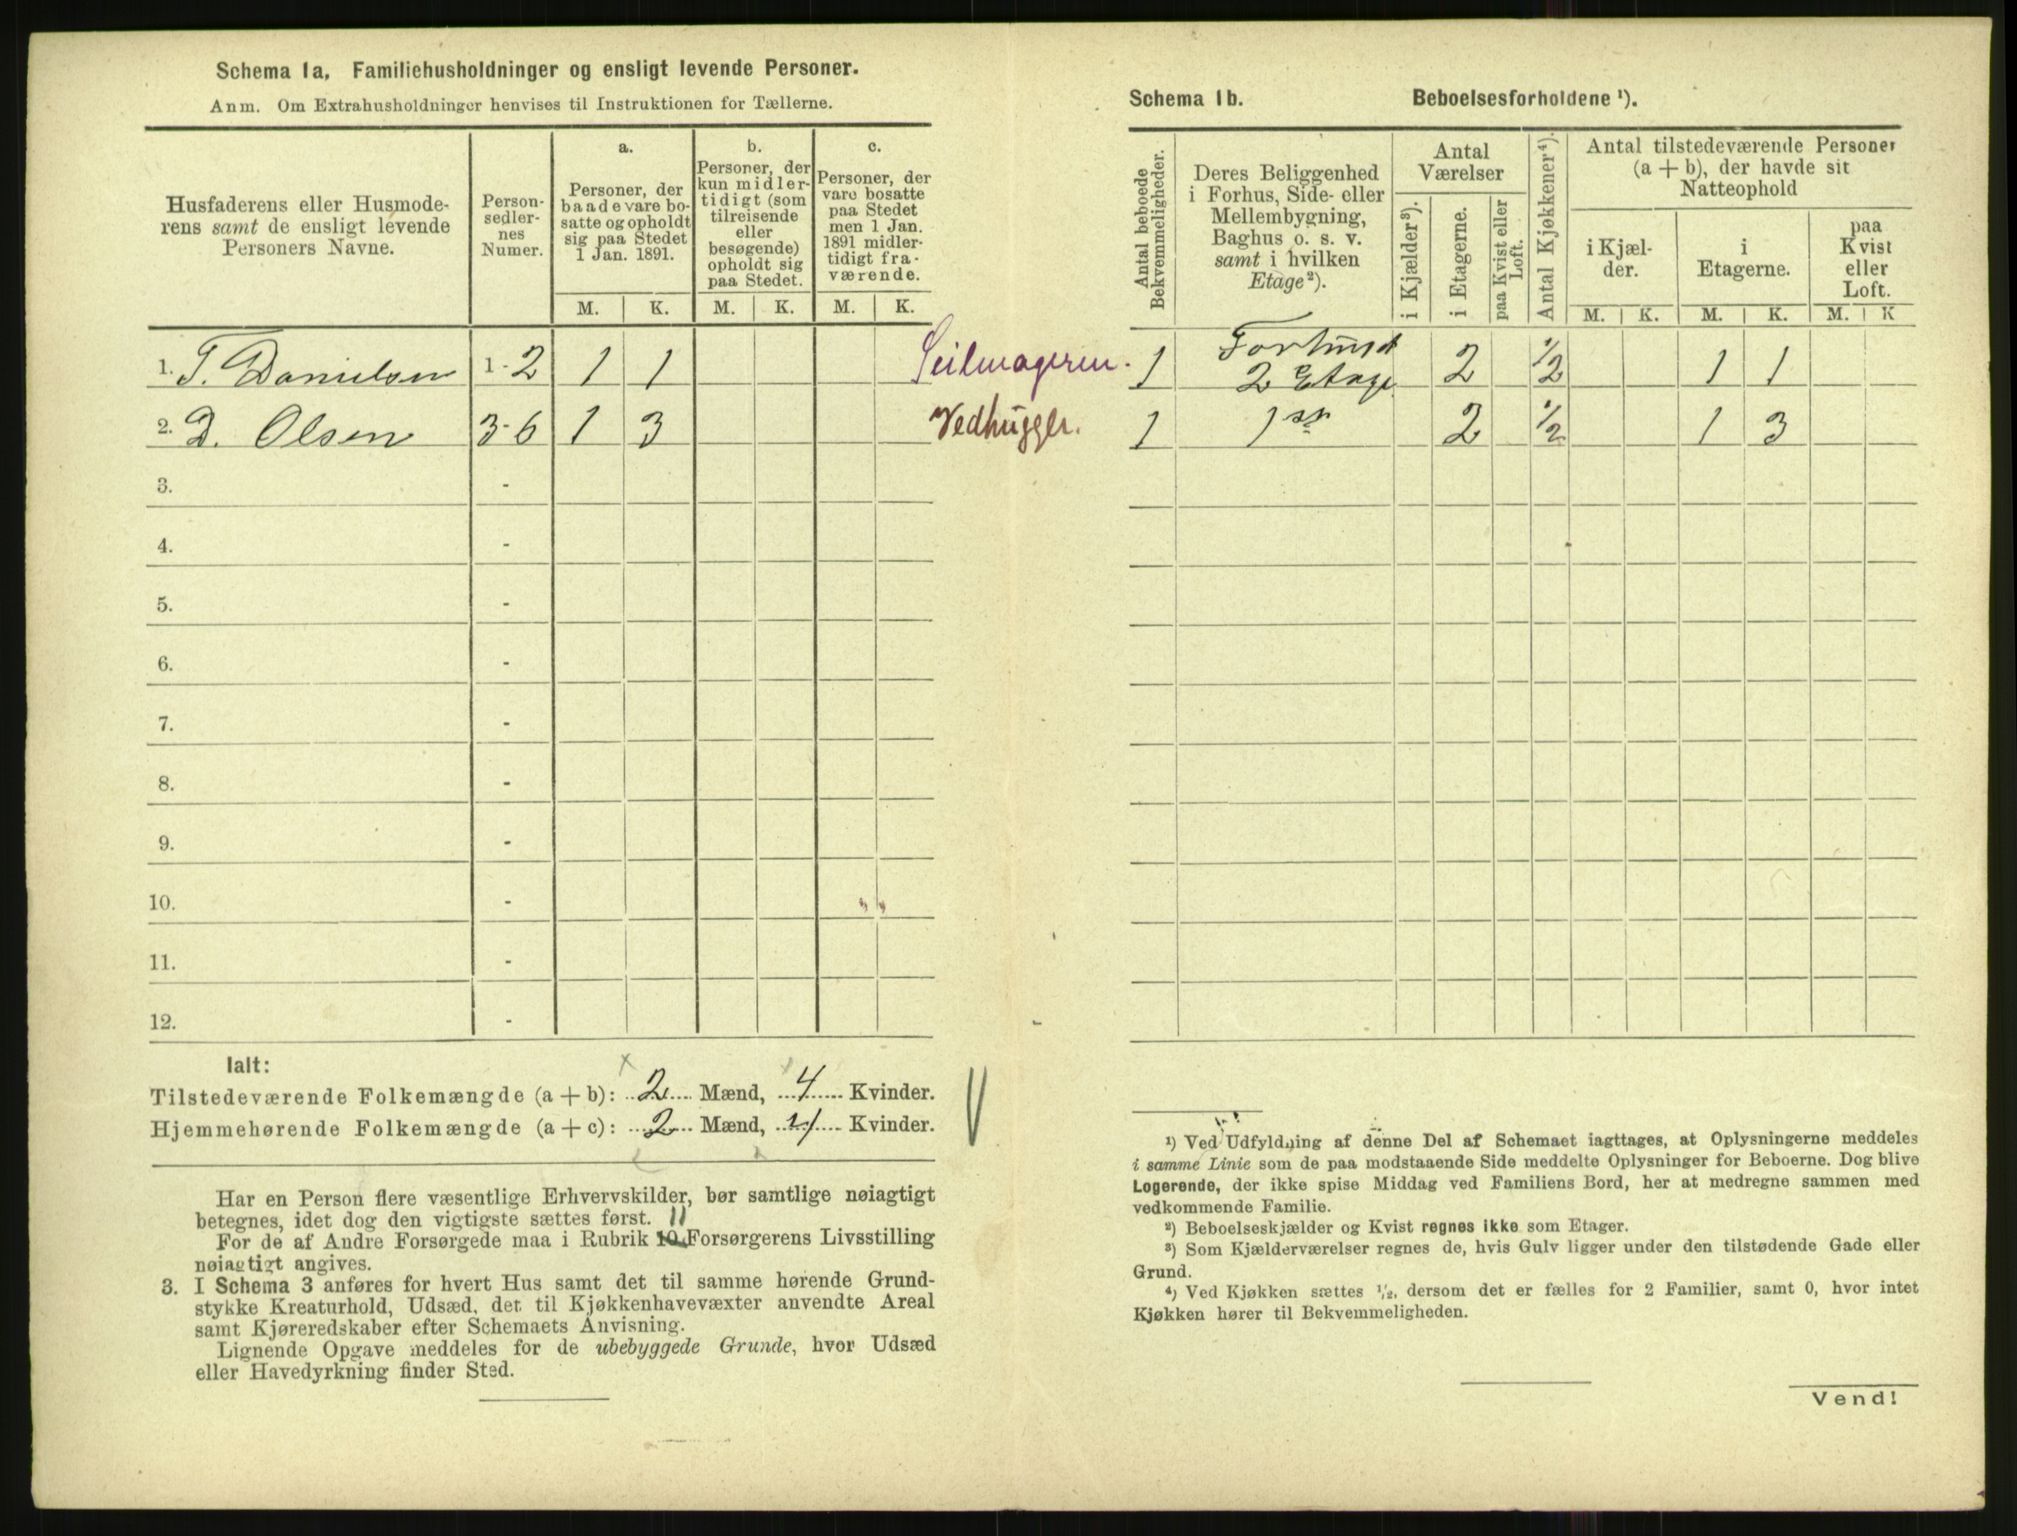 Schema 1a. Familiehusholdninger og ensligt levende Personer.
Anm. Om Extrahusholdninger henvises til Instruktionen for Tællerne.
Husfaderens eller Husmode-
rens samt de ensligt levende
Personers Navne.
Person-
sedler-
nes
Numer.
a.
Personer, der
baade vare bo-
satte og opholdt
sig paa Stedet
1 Jan. 1891.
b.
Personer, der
kun midler-
tidigt (som
tilreisende
eller
besøgende)
opholdt sig
paa Stedet.
c.
Personer, der
vare bosatte
paa Stedet
men 1 Jan.
1891 midler-
tidigt fra-
værende.
M. K. M. K. M. K.
1. T. Danielsen 1-2 1 1 Seilmagerm.
2. D. Olsen 3-6 1 3 Vedhugger.
3. -
4. -
5. -
6. -
7. -
8. -
9. -
10. - " "
11. -
12. -
Ialt:
Tilstedeværende Folkemængde (a + b): 2 Mænd, 4 Kvinder.
Hjemmehørende Folkemængde (a + c): 2 Mænd, 4 Kvinder.
Har en Person flere væsentlige Erhvervskilder, bør samtlige nøiagtigt
betegnes, idet dog den vigtigste sættes først. 11
For de af Andre Forsørgede maa i Rubrik 10 Forsørgerens Livsstilling
nøiagtigt angives.
3. I Schema 3 anføres for hvert Hus samt det til samme hørende Grund-
stykke Kreaturhold, Udsæd, det til Kjøkkenhavevæxter anvendte Areal
samt Kjøreredskaber efter Schemaets Anvisning.
Lignende Opgave meddeles for de ubebyggede Grunde, hvor Udsæd
eller Havedyrkning finder Sted.
Schema 1b. Beboelsesforholdene ¹).
Antal beboede
Bekvemmeligheder.
Deres Beliggenhed
i Forhus, Side- eller
Mellembygning,
Baghus o. s. v.
samt i hvilken
Etage²).
Antal
Værelser
i Kjælder³).
i Etagerne.
paa Kvist eller
Loft.
Antal Kjøkkener⁴).
Antal tilstedeværende Personer
(a + b), der havde sit
Natteophold
i Kjæl-
der.
i
Etagerne.
paa
Kvist
eller
Loft.
M. K. M. K. M. K
1 Forhuset 2 Etage 2 1/2 1 1
1 1ste 2 1/2 1 3
¹) Ved Udfyldning af denne Del af Schemaet iagttages, at Oplysningerne meddeles
i samme Linie som de paa modstaaende Side meddelte Oplysninger for Beboerne. Dog blive
Logerende, der ikke spise Middag ved Familiens Bord, her at medregne sammen med
vedkommende Familie.
²) Beboelseskjælder og Kvist regnes ikke som Etager.
³) Som Kjælderværelser regnes de, hvis Gulv ligger under den tilstødende Gade eller
Grund.
⁴) Ved Kjøkken sættes ¹/₂, dersom det er fælles for 2 Familier, samt 0, hvor intet
Kjøkken hører til Bekvemmeligheden.
Vend!